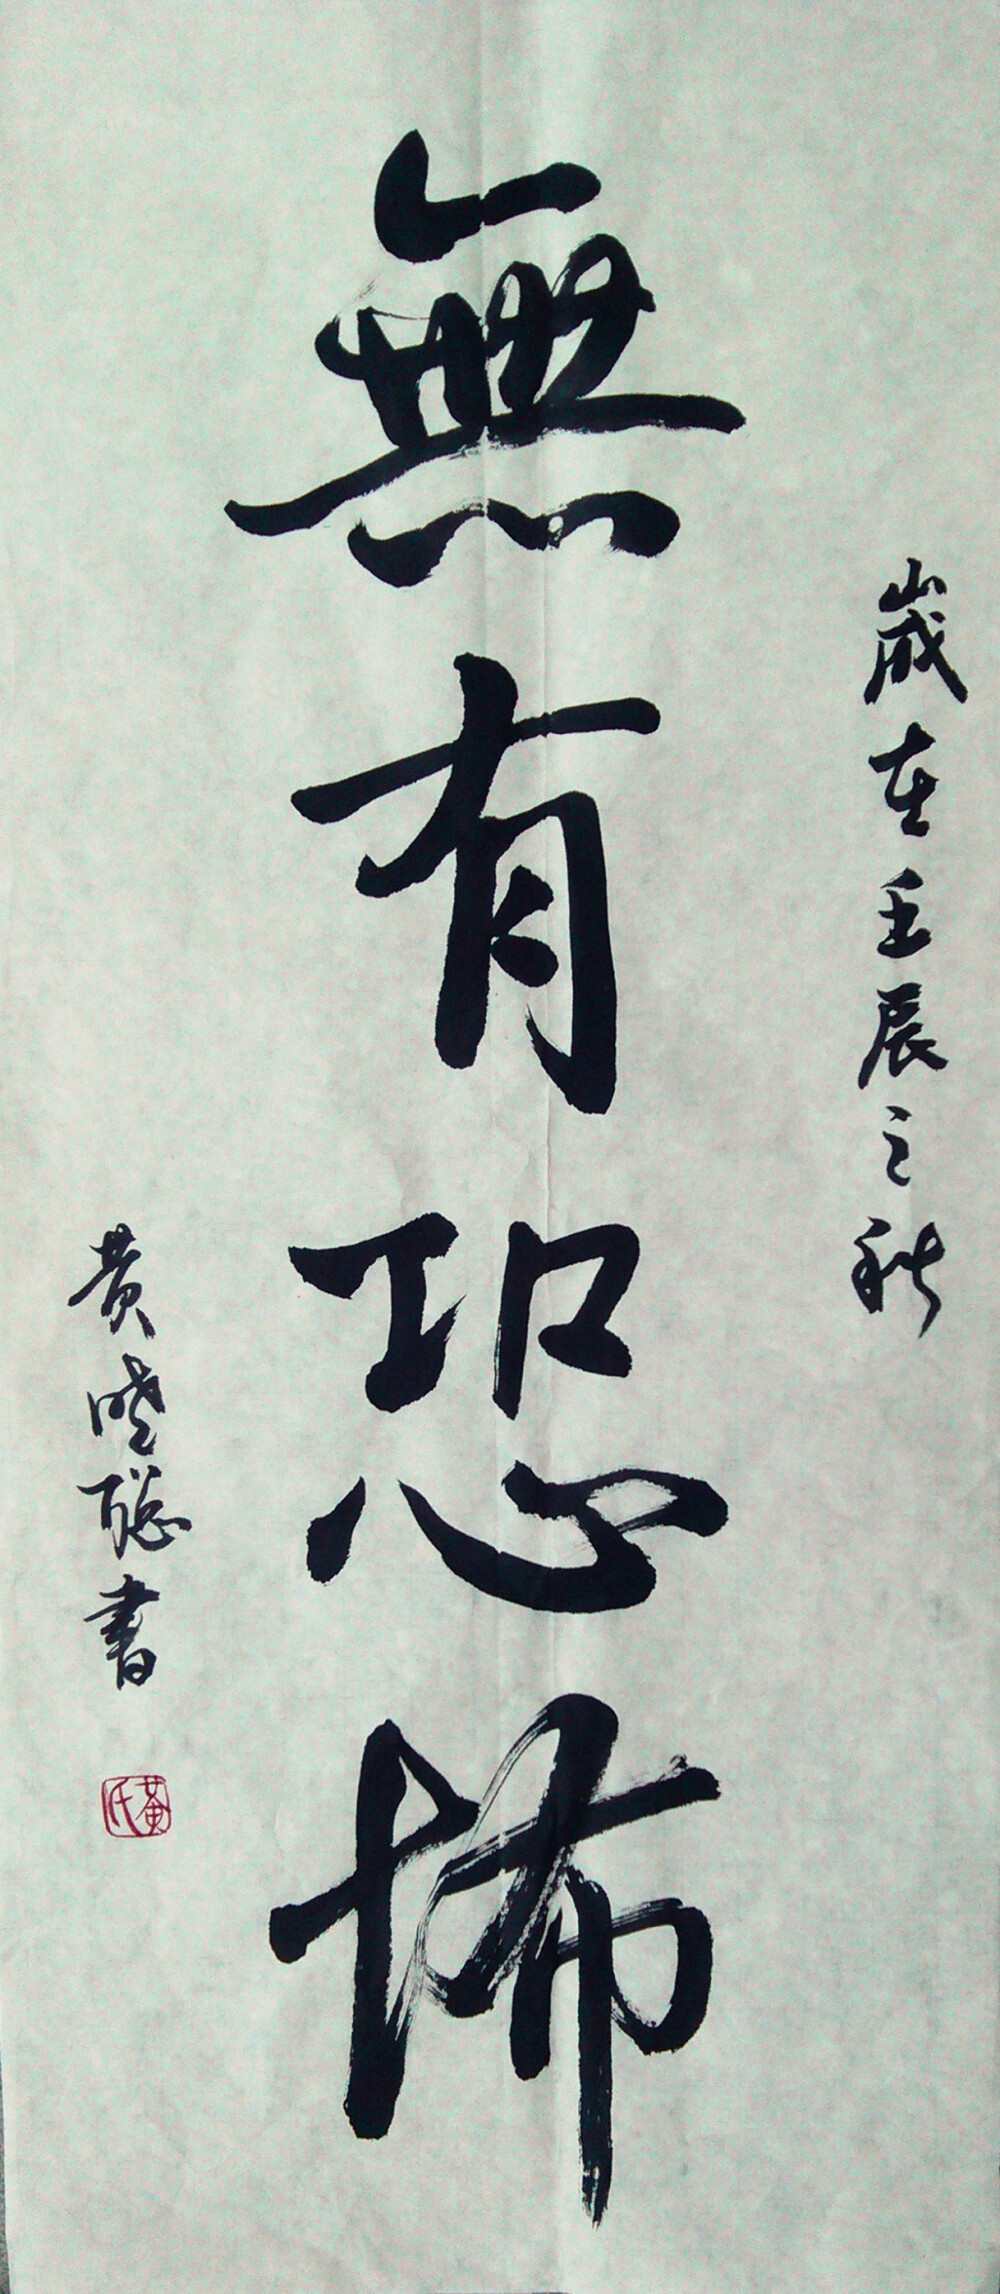 歲在壬辰之秋
無有恐怖
黄曉聰書
黃氏